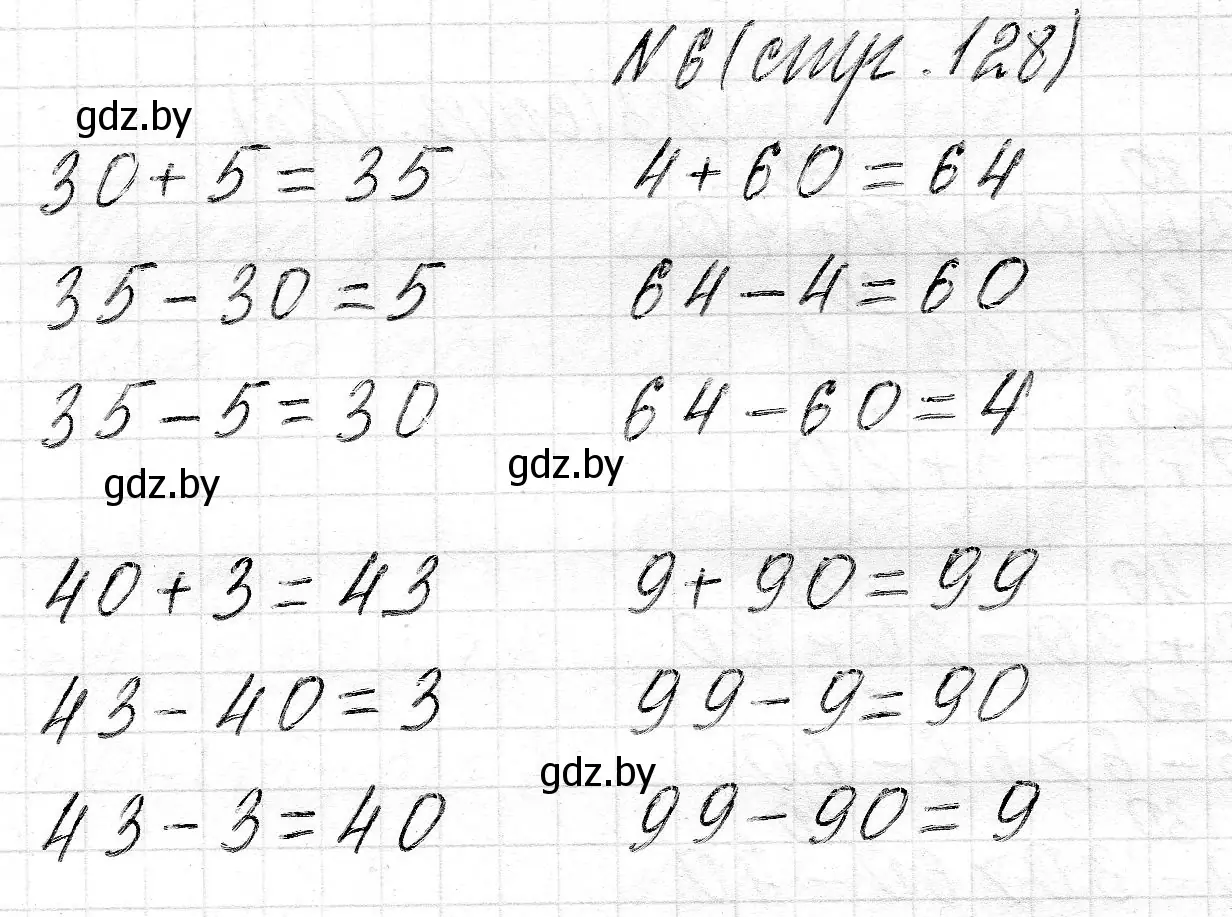 N 6 (стр. 128)
gdz.by
30 + 5 = 35
4 + 60 = 64
35 - 30 = 5
64 - 4 = 60
35 - 5 = 30
64 - 60 = 4
gdz.by
gdz.by
40 + 3 = 43
9 + 90 = 99
43 - 40 = 3
99 - 9 = 90
gdz.by
43 - 3 = 40
99 - 90 = 9